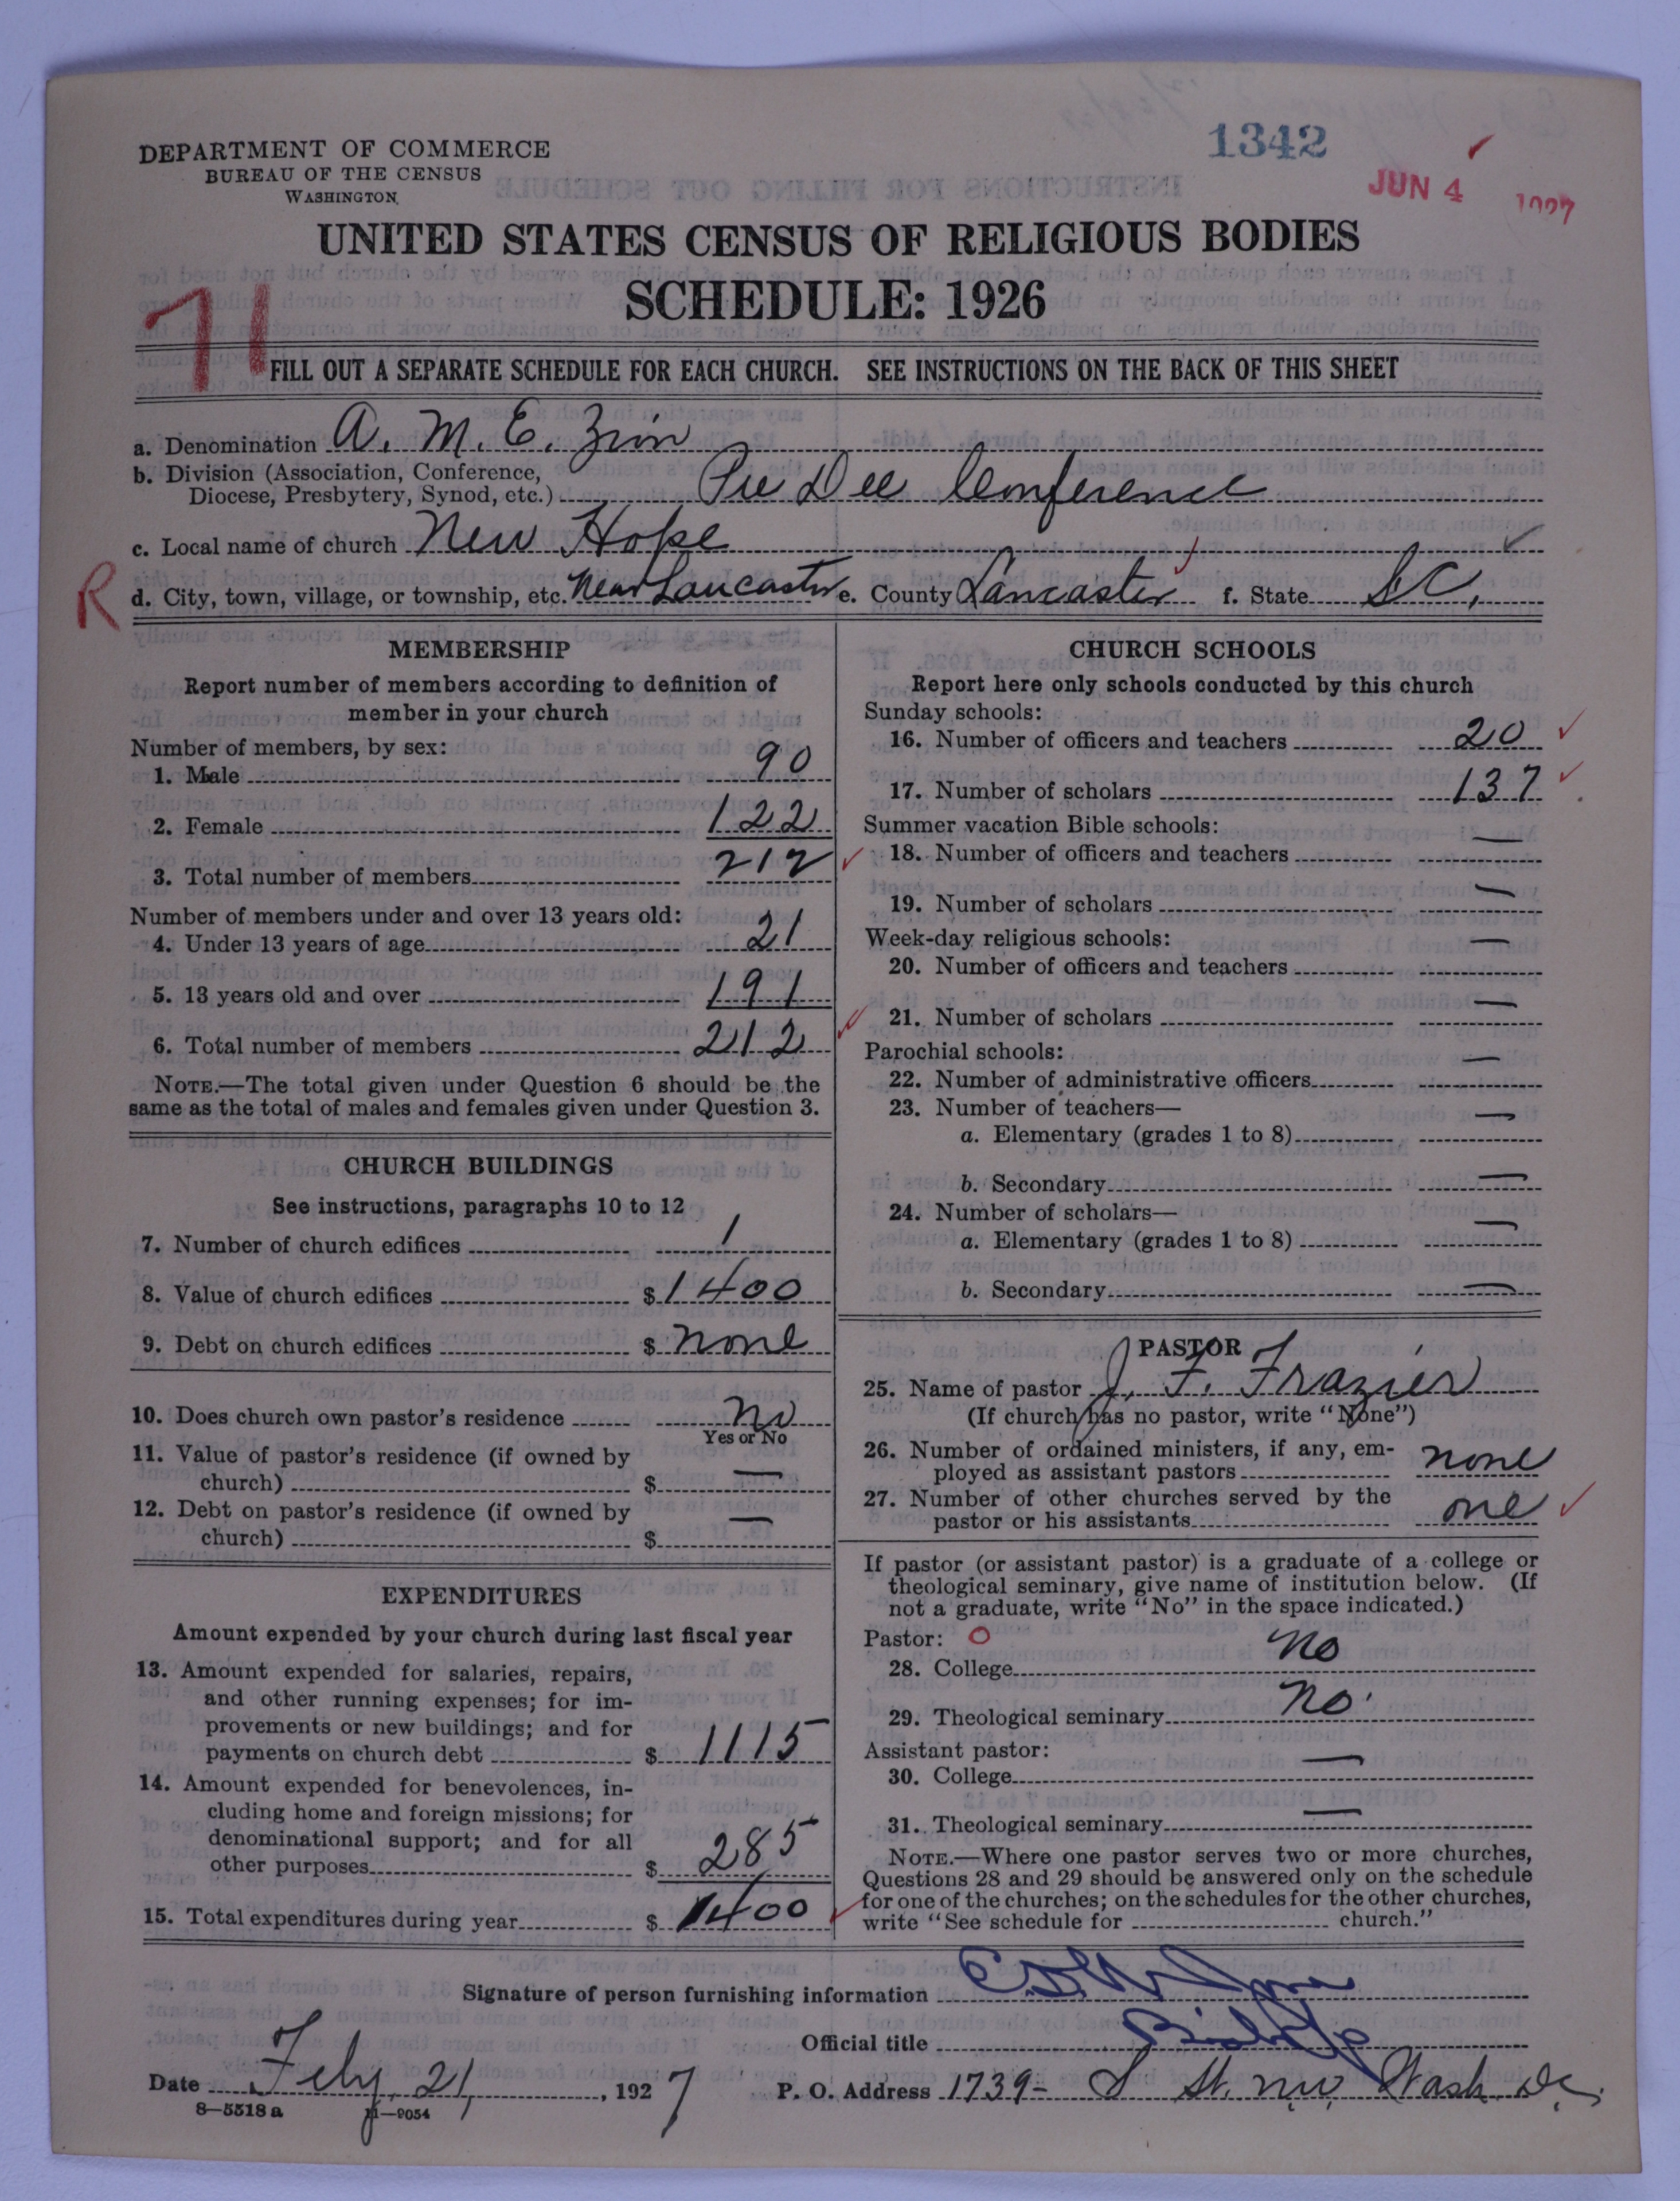 1342
JUN 4 1927
DEPARTMENT OF COMMERCE
BUREAU OF THE CENSUS
WASHINGTON
UNITED STATES CENSUS OF RELIGIOUS BODIES
SCHEDULE: 1926
71
FILL OUT A SEPARATE SCHEDULE FOR EACH CHURCH. SEE INSTRUCTIONS ON THE BACK OF THIS SHEET
a. Denomination A. M. E. Zion
b. Division (Association, Conference,
Diocese, Presbytery, Synod, etc.) Pee Dee Conference
c. Local name of church New Hope
R
d. City, town, village, or township, etc. Near Lancaster e. County Lancaster f. State S.C.
MEMBERSHIP
Report number of members according to definition of
member in your church
Number of members, by sex:
1. Male 90
2. Female 122
3. Total number of members 212
Number of members under and over 13 years old:
4. Under 13 years of age 21
5. 13 years old and over 191
6. Total number of members 212
NOTE.—The total given under Question 6 should be the
same as the total of males and females given under Question 3.
CHURCH BUILDINGS
See instructions, paragraphs 10 to 12
7. Number of church edifices 1
8. Value of church edifices $ 1400
9. Debt on church edifices $ none
10. Does church own pastor's residence no
Yes or No
11. Value of pastor's residence (if owned by
church) $ —
12. Debt on pastor's residence (if owned by
church) $ —
EXPENDITURES
Amount expended by your church during last fiscal year
13. Amount expended for salaries, repairs,
and other running expenses; for im-
provements or new buildings; and for
payments on church debt $ 1115
14. Amount expended for benevolences, in-
cluding home and foreign missions; for
denominational support; and for all
other purposes $ 285
15. Total expenditures during year $ 1400
CHURCH SCHOOLS
Report here only schools conducted by this church
Sunday schools:
16. Number of officers and teachers 20
17. Number of scholars 137
Summer vacation Bible schools:
18. Number of officers and teachers —
19. Number of scholars —
Week-day religious schools:
20. Number of officers and teachers —
21. Number of scholars —
Parochial schools:
22. Number of administrative officers —
23. Number of teachers—
a. Elementary (grades 1 to 8) —
b. Secondary —
24. Number of scholars—
a. Elementary (grades 1 to 8) —
b. Secondary —
PASTOR
25. Name of pastor J. F. Frazier
(If church has no pastor, write "None")
26. Number of ordained ministers, if any, em-
ployed as assistant pastors none
27. Number of other churches served by the
pastor or his assistants one
If pastor (or assistant pastor) is a graduate of a college or
theological seminary, give name of institution below. (If
not a graduate, write "No" in the space indicated.)
Pastor: O
28. College no
29. Theological seminary no
Assistant pastor:
30. College —
31. Theological seminary —
NOTE.—Where one pastor serves two or more churches,
Questions 28 and 29 should be answered only on the schedule
for one of the churches; on the schedules for the other churches,
write "See schedule for church."
Signature of person furnishing information
Official title Bishop
Date Feby. 21, 1927 P. O. Address 1739- S St. N.W. Wash. D.C.
8—5518 a 11—9054